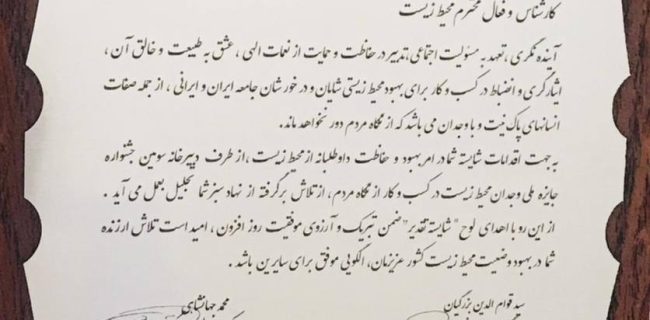 کارشناس و فعال محترم محیط زیست
آینده نگری ، تعهد به مسئولیت اجتماعی، تدبیر در حفاظت و حمایت از نعمات الهی ، عشق به طبیعت و خالق آن ،
ایثارگری و انضباط در کسب و کار برای بهبود محیط زیستی شایان و در خور شان جامعه ایران و ایرانی ، از جمله صفات
انسانهای پاک نیت و با وجدان می باشد که از نگاه مردم دور نخواهد ماند.
به جهت اقدامات شایسته شما در امر بهبود و حفاظت داوطلبانه از محیط زیست ، از طرف دبیرخانه سومین جشنواره
جایزه ملی وجدان محیط زیست در کسب و کار از نگاه مردم، از تلاش برگرفته از نهاد سبز شما تجلیل بعمل می آید .
از این رو با اهدای لوح " شایسته تقدیر" ضمن تبریک و آرزوی موفقیت روز افزون ، امید است تلاش ارزنده
شما در بهبود وضعیت محیط زیست کشور عزیزمان، الگویی موفق برای سایرین باشد .
سید قوام الدین بزرگیان
محمد جهانشاهی